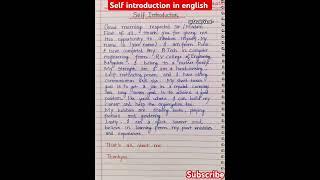 Self introduction in english
Self Introduction
Good morning respected Sir/Madam
First of all, I thank you for giving me
this opportunity to introduce myself. My
name is (your name). I am from Pune.
I have completed my B.Tech in Computer
engineering from RV college of Engineering
I belong to a nuclear family.
My strength are I am a hardworking,
Self motivating person, and I have strong
communication skill also. My short term
goal is to get a job in a reputed company
and long terms goal is to achieve a good
position where I can build my
career and help the organization too.
My hobbies are reading books, playing
and gardening.
Lastly I am a quick learner and
believe in learning from my past mistakes
and experiences.
That's all about me.
Thankyou.
Subscribe